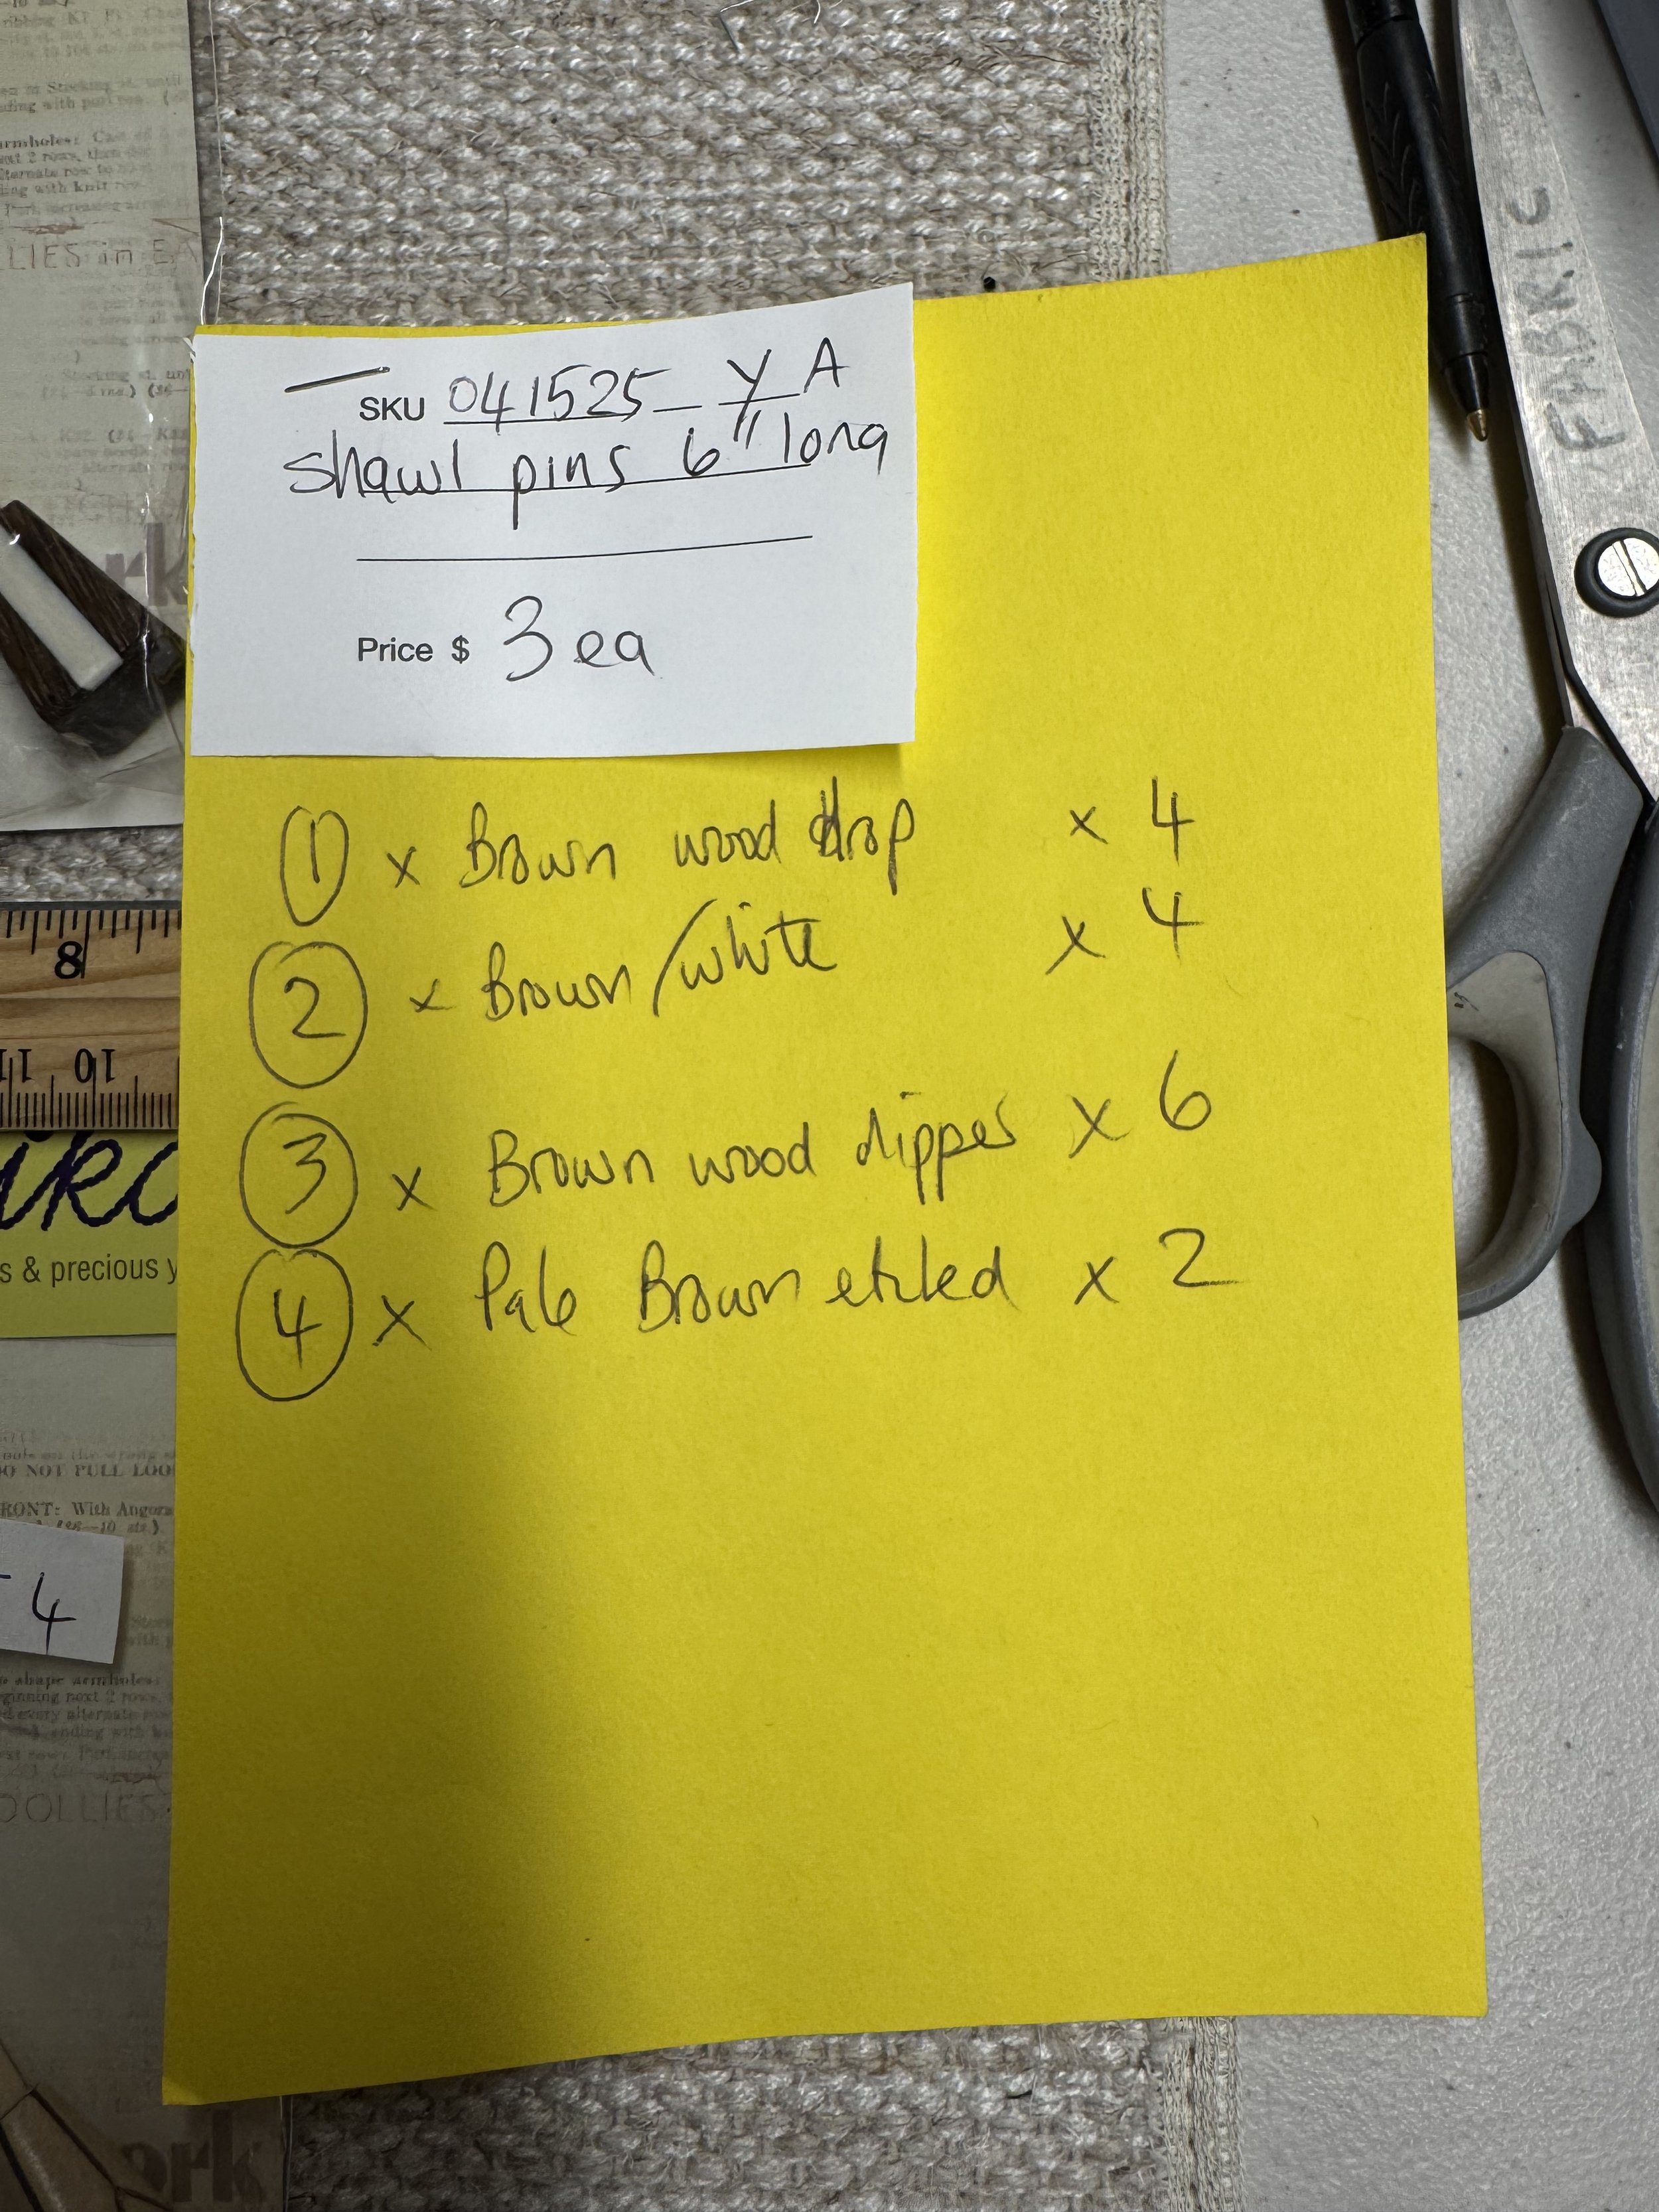 SKU 041525_YA
shawl pins 6" long
Price $ 3 ea
① x Brown wood drop x 4
② x Brown/white x 4
③ x Brown wood dipper x 6
④ x Pale Brown etched x 2
FABRIC
8
10 11
s & precious y
4
LLIES in EA
rk
DO NOT PULL LOO
RONT: With Angora
OOLLIES
ork